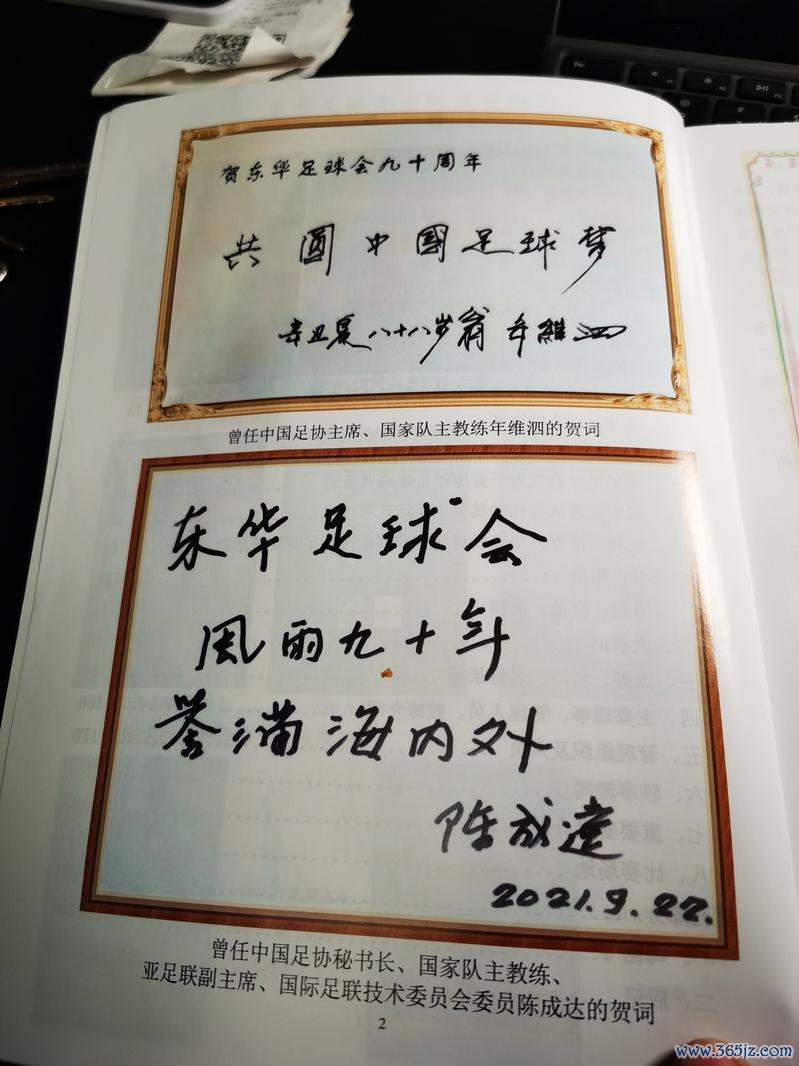 贺东华足球会九十周年
共圆中國足球梦
辛丑夏八十八岁翁年維泗
曾任中国足协主席、国家队主教练年维泗的贺词
东华足球会
風雨九十年
誉满海内外
陈成達
2021.9.22.
曾任中国足协秘书长、国家队主教练、
亚足联副主席、国际足联技术委员会委员陈成达的贺词
2
www.365jz.com